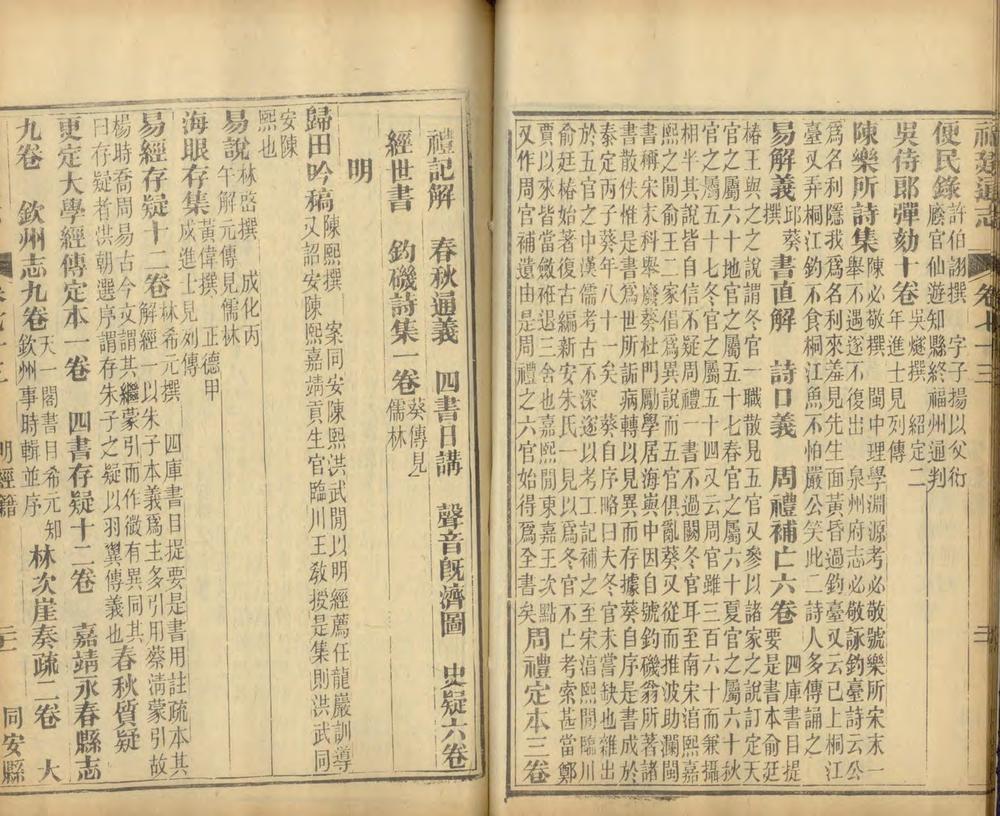 福建通志 卷七十三
便民錄許伯詡撰 字子揚以父衍
廕官仙遊知縣終福州通判
吳侍郎彈劾十卷吳燧撰 紹定二
年進士見列傳
陳樂所詩集陳必敬撰 閩中理學淵源考必敬號樂所宋末一
舉不遇遂不復出 泉州府志必敬詠釣臺詩云公
爲名利隱我爲名利來羞見先生面黃昏過釣臺又云已上桐江
臺又弄桐江釣不食桐江魚不怕嚴公笑此二詩人多傳誦之
易解義邱葵撰 書直解 詩口義 周禮補亡六卷 四庫書目提
要是書本俞廷
椿王與之之說謂冬官一職散見五官又參以諸家之說訂定天
官之屬六十地官之屬五十七春官之屬六十夏官之屬六十秋
官之屬五十七冬官之屬五十四又云周官雖三百六十而兼攝
相半其說皆自信不疑周禮一書不過闕冬官耳至南宋淳熙嘉
熙之閒俞王二家倡爲異說而五官俱亂葵又從而推波助瀾閩
書稱宋末科舉廢葵杜門勵學居海嶼中因自號釣磯翁所著諸
書散佚惟是書爲世所詬病轉以見異而存據葵自序是書成於
泰定丙子葵年八十一矣 葵自序略曰夫冬官未嘗缺也雜出
於五官之中漢儒考古不深遂以考工記補之至宋淳熙閒臨川
俞廷椿始著復古編新安朱氏一見以爲冬官不亡考索甚當鄭
賈以來皆當斂衽退三舍也嘉熙閒東嘉王次點
又作周官補遺由是周禮之六官始得爲全書矣 周禮定本三卷
禮記解 春秋通義 四書日講 聲音旣濟圖 史疑六卷
經世書 釣磯詩集一卷葵傳見
儒林
明
歸田吟稿陳熙撰 案同安陳熙洪武閒以明經薦任龍巖訓導
又詔安陳熙嘉靖貢生官臨川王敎授是集則洪武同
安陳
熙也
易說林啓撰 成化丙
午解元傳見儒林
海眼存集黃偉撰 正德甲
戌進士見列傳
易經存疑十二卷林希元撰 四庫書目提要是書用註疏本其
解經一以朱子本義爲主多引用蔡淸蒙引故
楊時喬周易古今文謂其繼蒙引而作微有異同其
曰存疑者洪朝選序謂存朱子之疑以羽翼傳義也 春秋質疑
更定大學經傳定本一卷 四書存疑十二卷 嘉靖永春縣志
九卷 欽州志九卷天一閣書目希元知
欽州事時輯並序 林次崖奏疏二卷 大
明經籍 三 同安縣